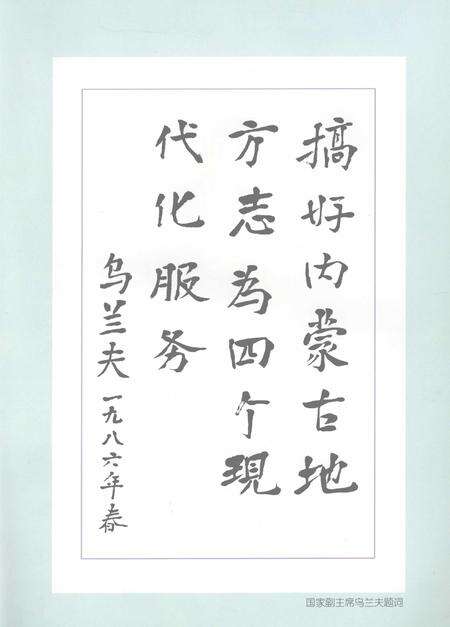 搞好内蒙古地
方志为四个現
代化服务
乌兰夫 一九八六年春
国家副主席乌兰夫题词